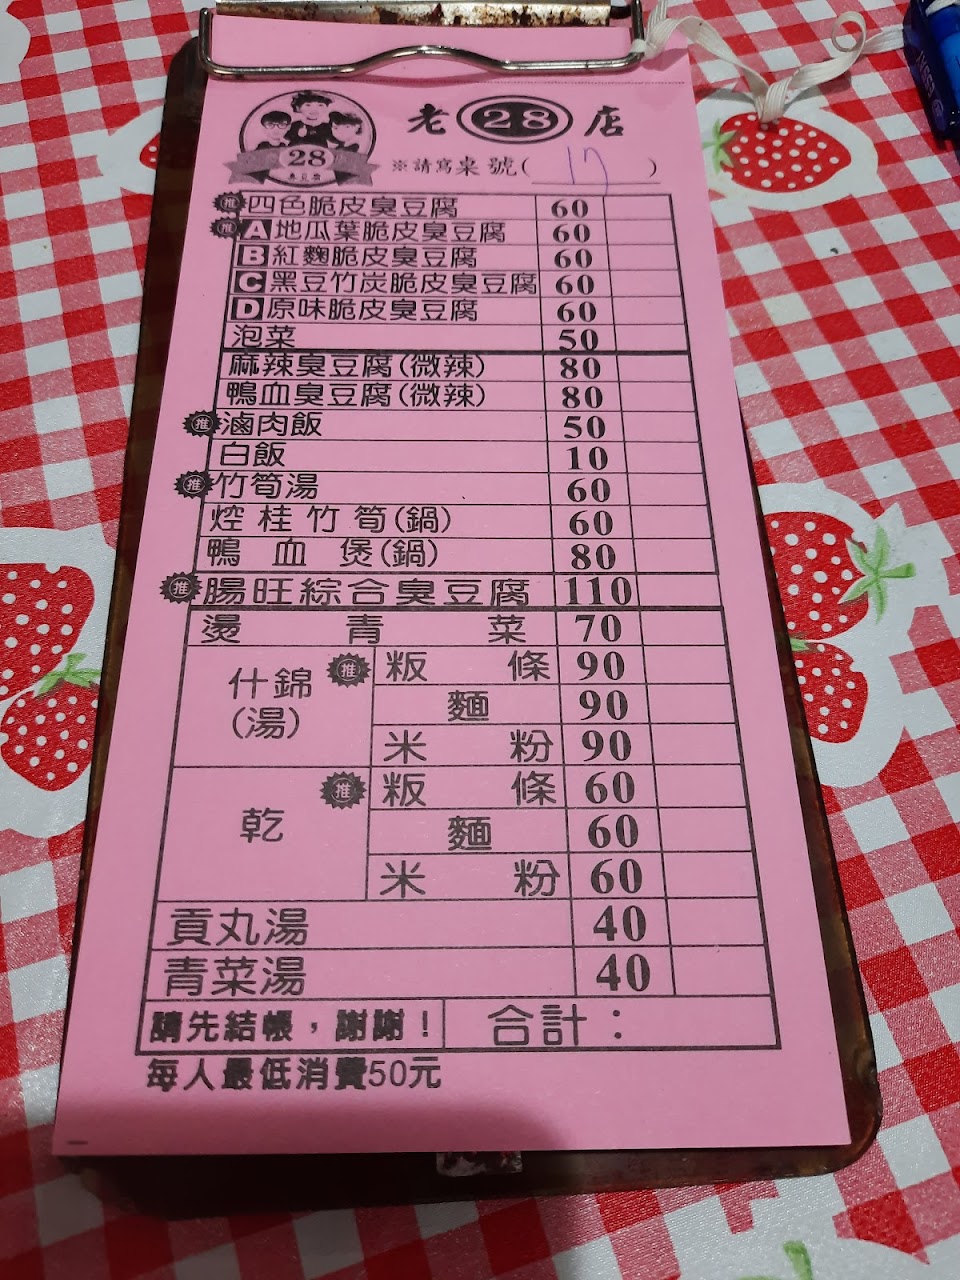 老 28 店
28
臭豆腐
※請寫桌號( 17 )
推 四色脆皮臭豆腐 60
推 A 地瓜葉脆皮臭豆腐 60
B 紅麴脆皮臭豆腐 60
C 黑豆竹炭脆皮臭豆腐 60
D 原味脆皮臭豆腐 60
泡菜 50
麻辣臭豆腐(微辣) 80
鴨血臭豆腐(微辣) 80
推 滷肉飯 50
白飯 10
推 竹筍湯 60
焢桂竹筍(鍋) 60
鴨血煲(鍋) 80
推 腸旺綜合臭豆腐 110
燙青菜 70
什錦(湯) 推 粄條 90
麵 90
米粉 90
乾 推 粄條 60
麵 60
米粉 60
貢丸湯 40
青菜湯 40
請先結帳，謝謝！ 合計：
每人最低消費50元